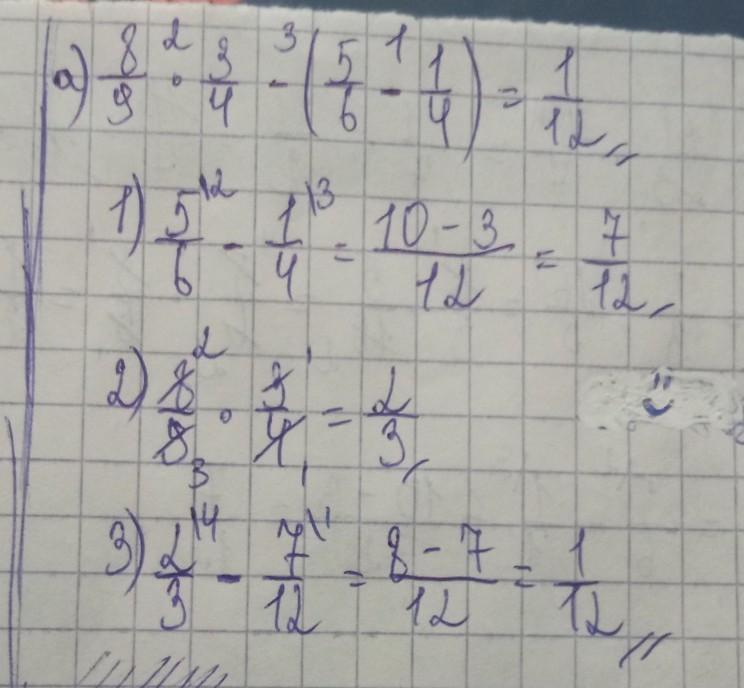 a) 8/9 ·² 3/4 -³ (5/6 -¹ 1/4) = 1/12 //
1) 5/6 \2 - 1/4 \3 = (10 - 3)/12 = 7/12 /
2) 8²/9₃ · 3¹/4₁ = 2/3 /
3) 2/3 \4 - 7/12 \1 = (8 - 7)/12 = 1/12 //